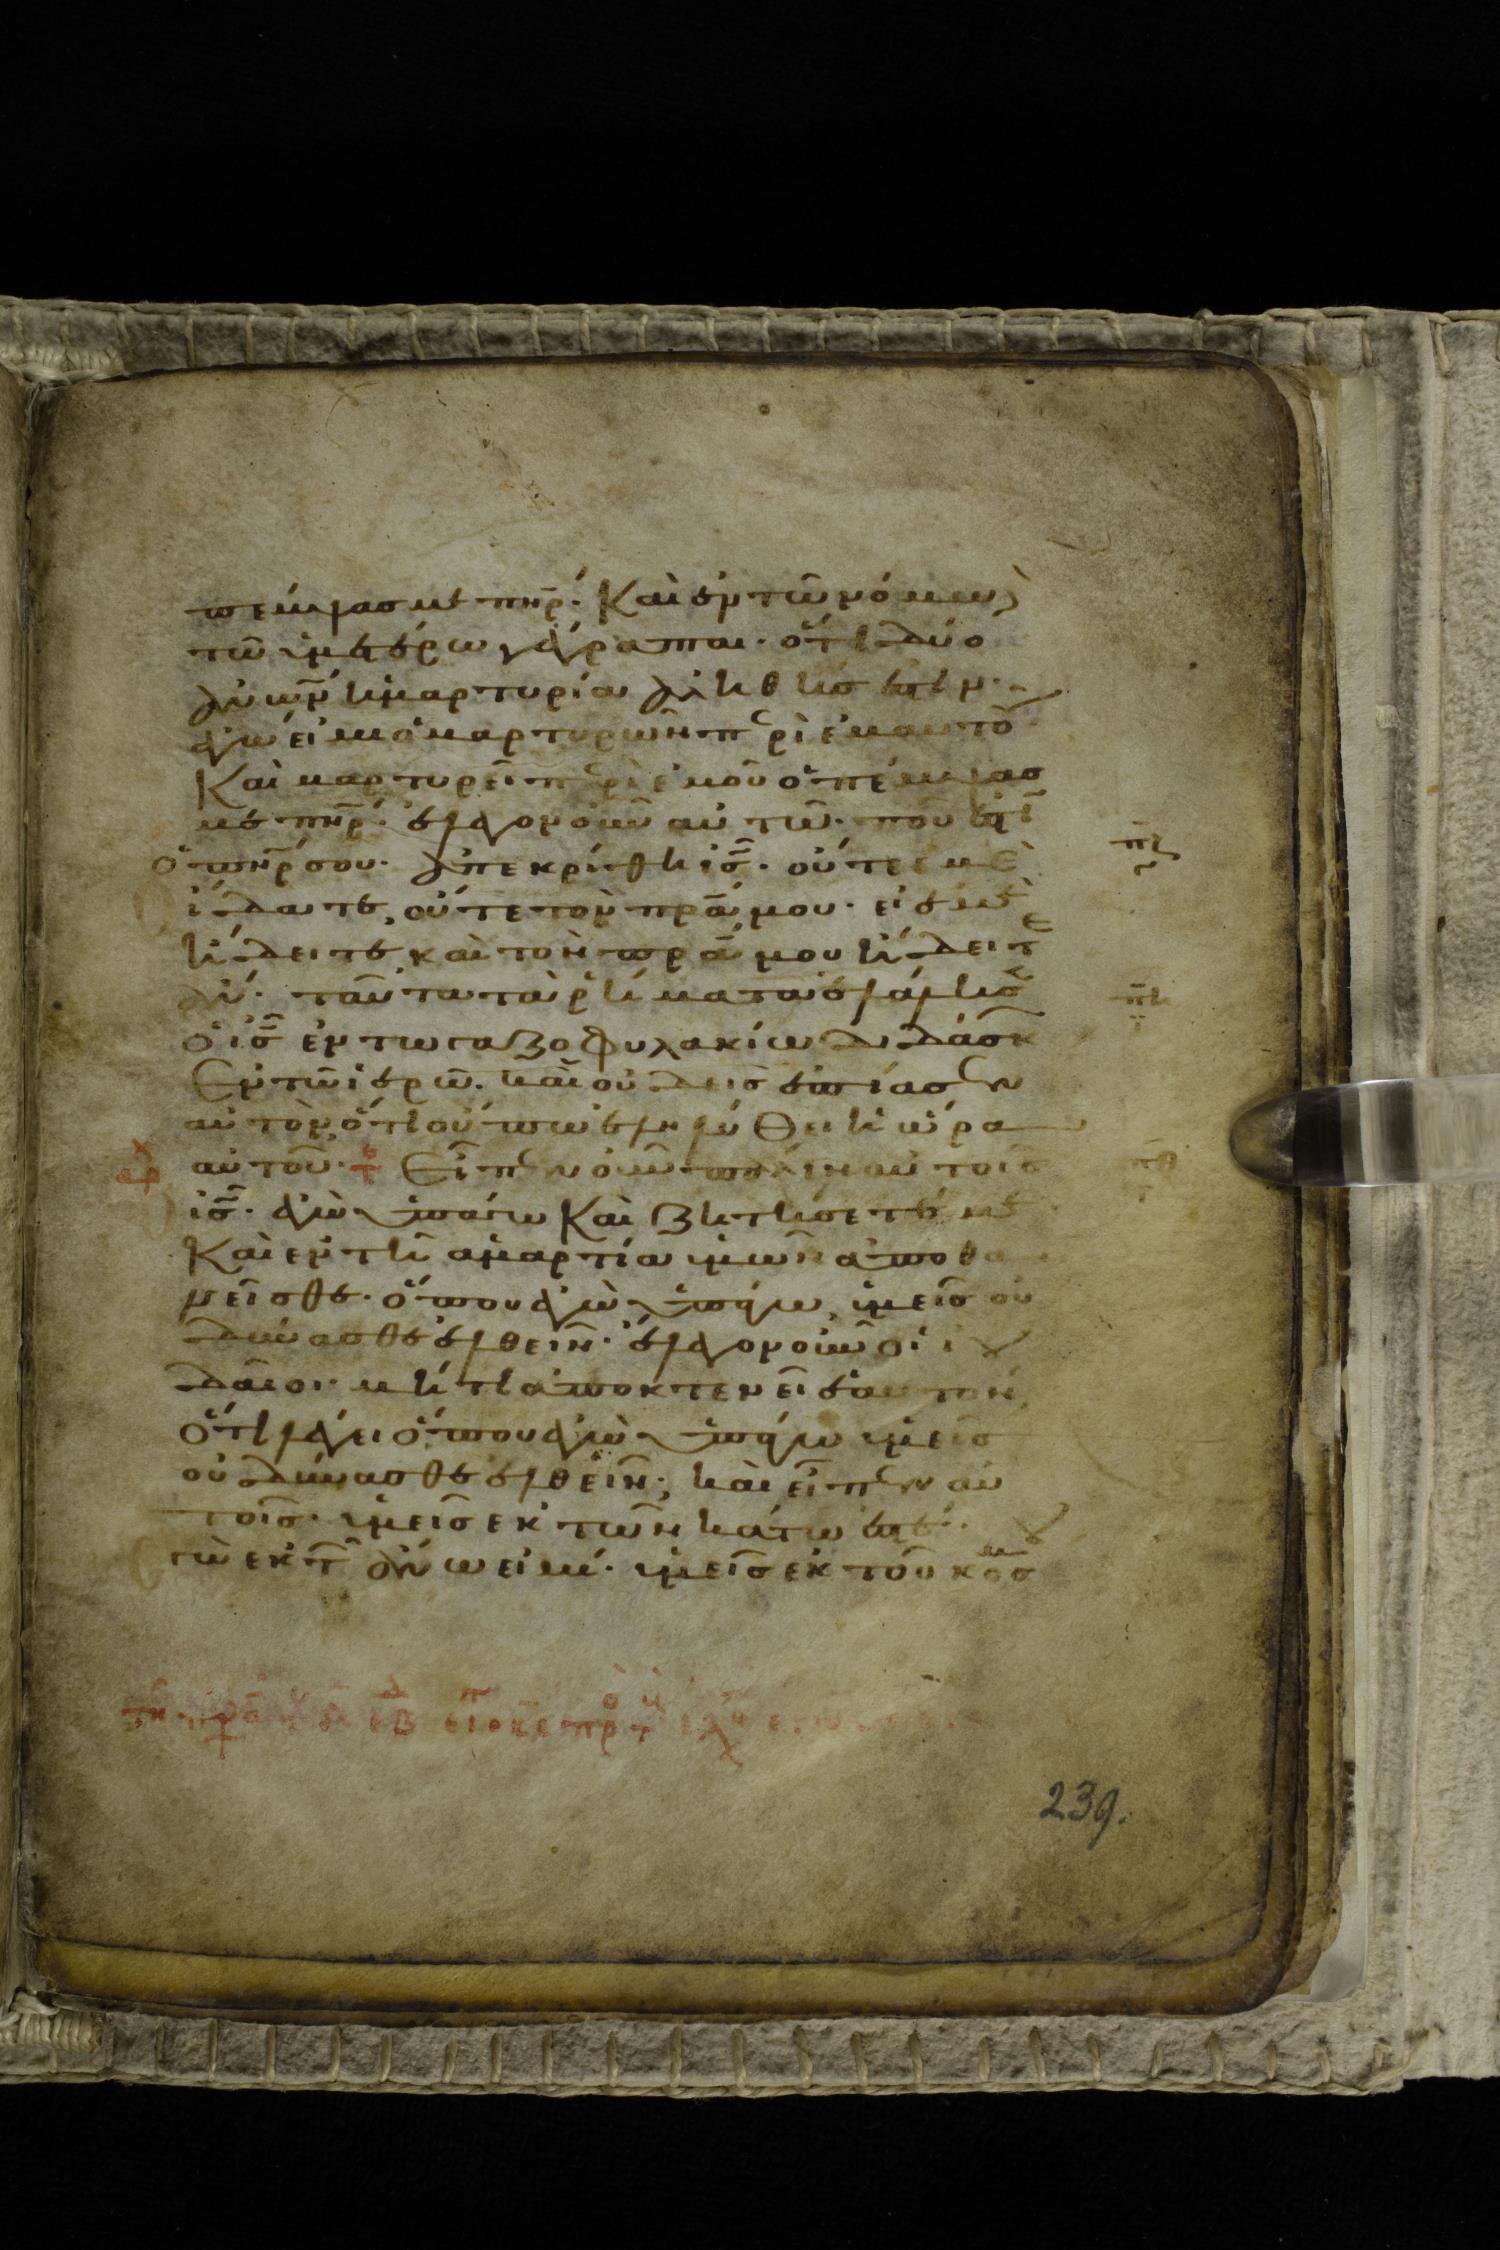 πέμψας με πηρ. Καὶ ἐν τῶ νόμω
τῶ ὑμετέρω γέγραπται. ὅτι δύο
ἀνων ἡ μαρτυρία ἀληθής ἐστιν.
ἐγώ εἰμι ὁ μαρτυρῶν περὶ ἐμαυτοῦ.
Καὶ μαρτυρεῖ περὶ ἐμοῦ ὁ πέμψας
με πηρ. ἔλεγον οὖν αὐτῶ. ποῦ ἐστὶ
ὁ πηρ σου. ἀπεκρίθη ις. οὔτε ἐμὲ
οἴδατε, οὔτε τὸν πρα μου. εἰ ἐμὲ
ἤδειτε, καὶ τὸν πρα μου ἤδειτε
ἄν. ταῦτα τὰ ῥήματα ἐλάλησεν
ὁ ις ἐν τω γαζοφυλακίω διδάσκ
ἐν τῶ ἱερῶ. καὶ οὐδεὶς ἐπίασεν
αὐτὸν, ὅτι οὔπω ἐληλύθει ἡ ὥρα
αὐτοῦ. Εἶπεν οὖν πάλιν αὐτοῖς
ις. ἐγὼ ὑπάγω Καὶ ζητήσετέ με
Καὶ ἐν τῆ ἁμαρτία ὑμῶν ἀποθα
νεῖσθε. ὅπου ἐγὼ ὑπάγω, ὑμεῖς οὐ
δύνασθε ἐλθεῖν. ἔλεγον οὖν οἱ ἰου
δαῖοι. μήτι ἀποκτενεῖ ἑαυτὸν,
ὅτι λέγει ὅπου ἐγὼ ὑπάγω ὑμεῖς
οὐ δύνασθε ἐλθεῖν; καὶ εἶπεν αὐ
τοῖς. ὑμεῖς ἐκ τῶν κάτω ἐστέ.
ἐγὼ ἐκ τῶν ἄνω εἰμί. ὑμεῖς ἐκ τοῦ κοσμ
239.